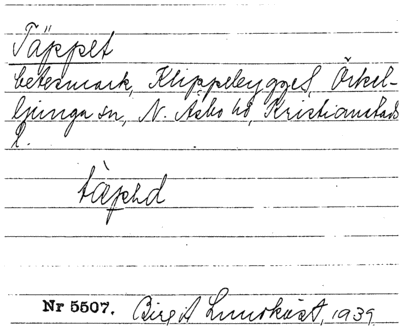 Täppet
betesmark, Klippebygget, Örkel-
ljunga sn, N. Åsbo hd, Kristianstads
l.
Nr 5507. Birgit Lundkvist, 1939